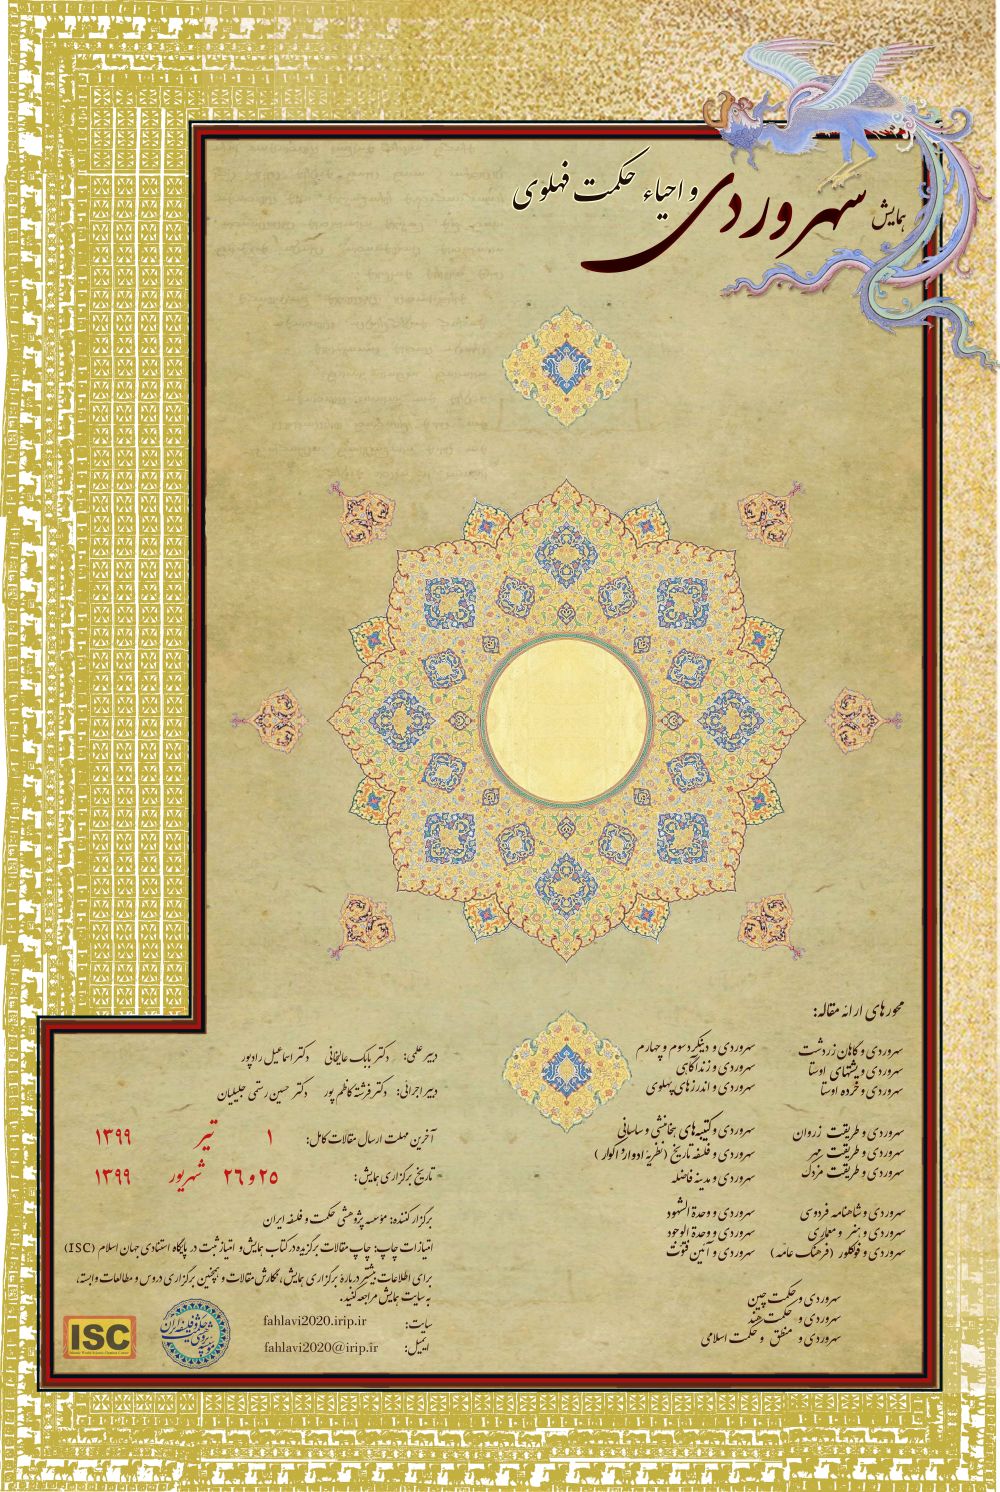 همایش سهروردی و احیاء حکمت فهلوی
محورهای ارائه مقاله:
سهروردی و گاهان زردشت
سهروردی و یشتهای اوستا
سهروردی و خرده اوستا
سهروردی و دینکرد سوم و چهارم
سهروردی و زندآگاهی
سهروردی و اندرزهای پهلوی
سهروردی و طریقت زروان
سهروردی و طریقت مهر
سهروردی و طریقت مزدک
سهروردی و کتیبه‌های هخامنشی و ساسانی
سهروردی و فلسفه تاریخ (نظریهٔ ادوار و اکوار)
سهروردی و مدینه فاضله
سهروردی و شاهنامه فردوسی
سهروردی و هنر و معماری
سهروردی و فولکلور (فرهنگ عامّه)
سهروردی و وحدة الشهود
سهروردی و وحدة الوجود
سهروردی و آئین فتوّت
سهروردی و حکمت چین
سهروردی و حکمت هند
سهروردی و منطق و حکمت اسلامی
دبیر علمی: دکتر بابک عالیخانی دکتر اسماعیل رادپور
دبیر اجرائی: دکتر فرشته کاظم پور دکتر حسین رستمی جلیلیان
آخرین مهلت ارسال مقالات کامل: ۱ تیر ۱۳۹۹
تاریخ برگزاری همایش: ۲۵ و ۲۶ شهریور ۱۳۹۹
برگزار کننده: مؤسسه پژوهشی حکمت و فلسفه ایران
امتیازات چاپ: چاپ مقالات برگزیده در کتاب همایش و امتیاز ثبت در پایگاه استنادی جهان اسلام (ISC)
برای اطلاعات بیشتر دربارهٔ برگزاری همایش، نگارش مقالات و همچنین برگزاری دروس و مطالعات وابسته،
به سایت همایش مراجعه کنید.
سایت: fahlavi2020.irip.ir
ایمیل: fahlavi2020@irip.ir
ISC
موسسه پژوهشی حکمت و فلسفه ایران